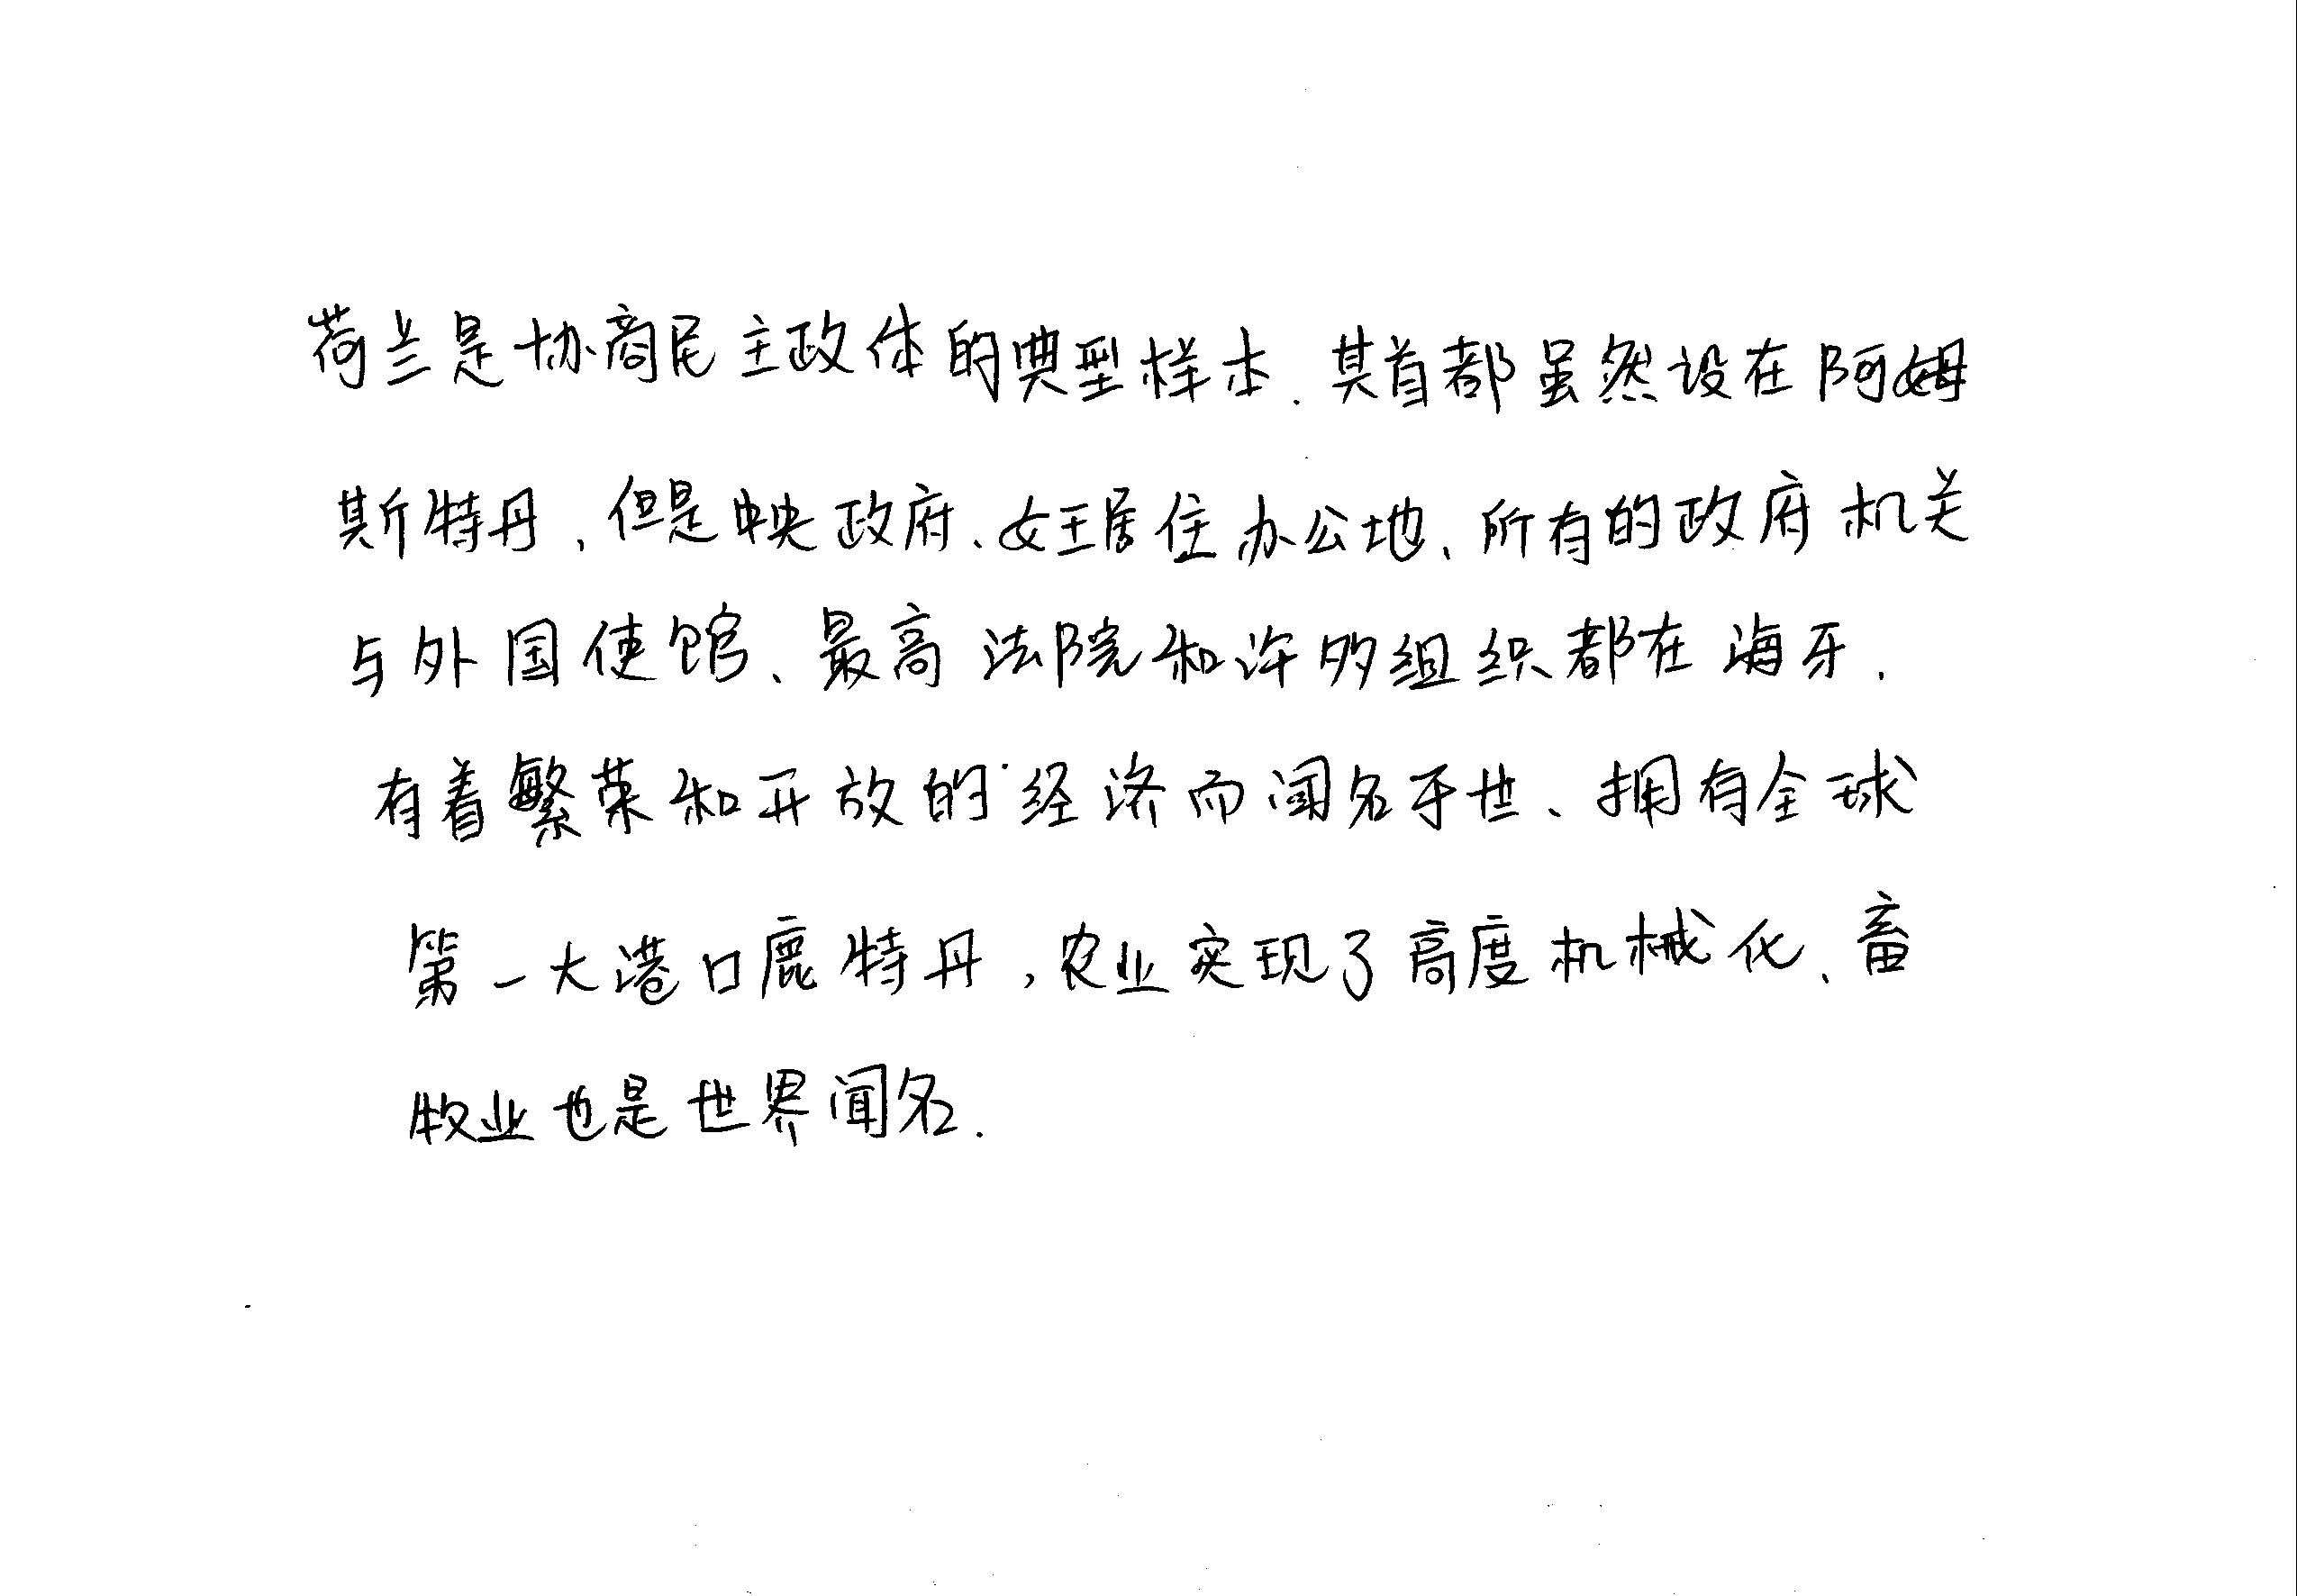 荷兰是协商民主政体的典型样本.其首都虽然设在阿姆
斯特丹,但是中央政府、女王居住办公地、所有的政府机关
与外国使馆、最高法院和许多组织都在海牙.
有着繁荣和开放的经济而闻名于世、拥有全球
第一大港口鹿特丹,农业实现了高度机械化、畜
牧业也是世界闻名.